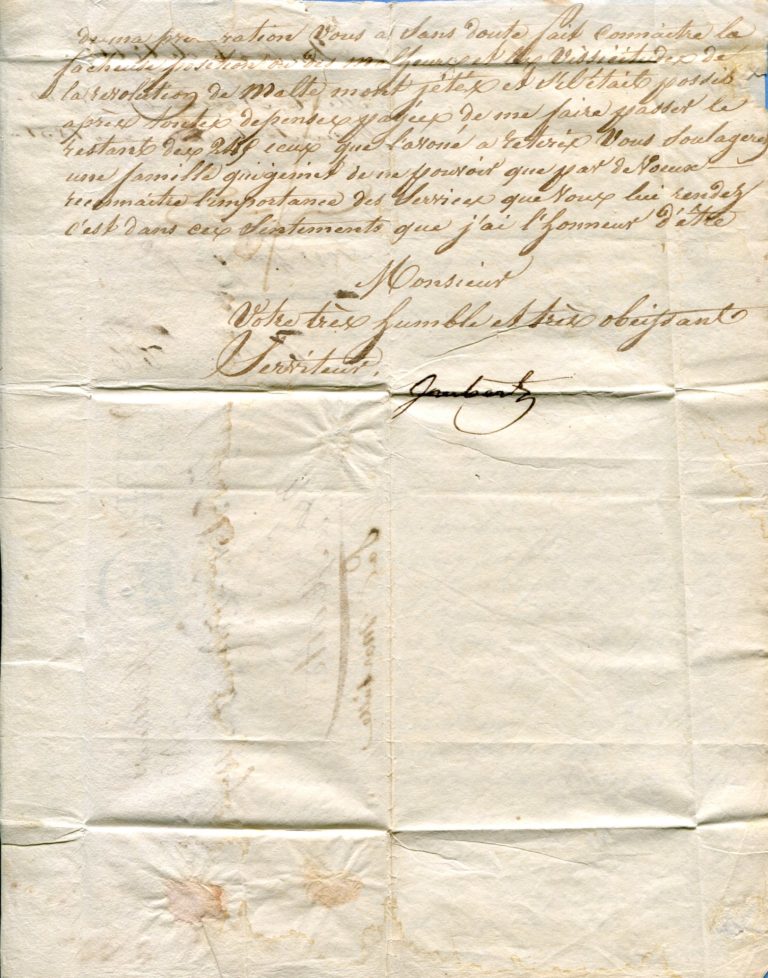 de ma pro ration Vous a Sans doute fait connaitre la
facheuse position ou des malheurs et des Vissicitudes de
la revolution de Malte mont jétés et S'il était possib
aprex toutes depenses payées de me faire passer le
restant des ecux que l'avoué a retirés Vous Soulageres
une famille qui gemit de ne pouvoir que par de Voeux
reconnaitre l'importance des Services que vous lui rendez
c'est dans ces Sentements que j'ai l'honneur d'être
Monsieur
Votre très humble et très obeissant
Serviteur.
Jaubert
Par Marseille